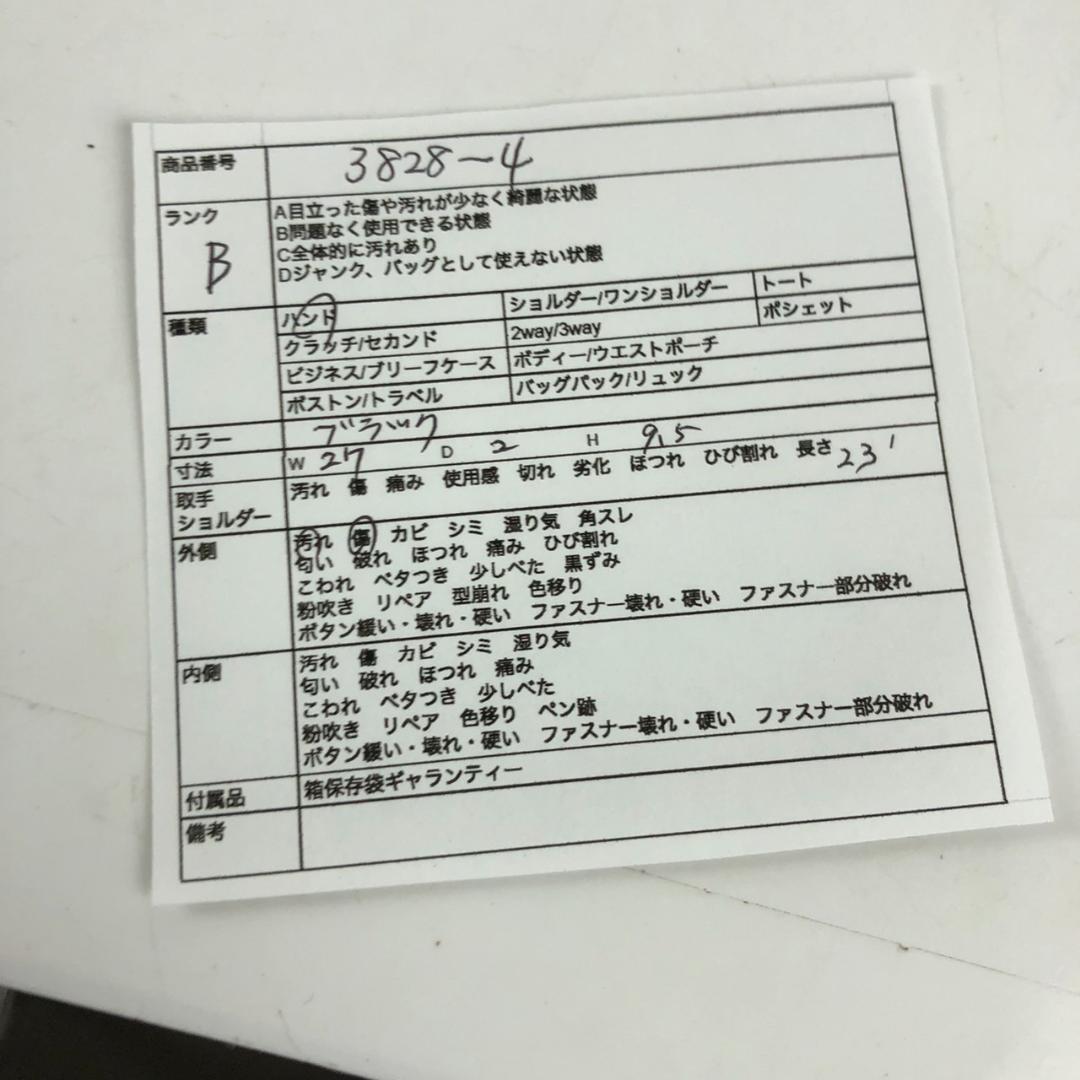 商品番号 3828-4
ランク B
A目立った傷や汚れが少なく綺麗な状態
B問題なく使用できる状態
C全体的に汚れあり
Dジャンク、バッグとして使えない状態
種類 ハンド ショルダー/ワンショルダー トート
クラッチ/セカンド 2way/3way ポシェット
ビジネス/ブリーフケース ボディー/ウエストポーチ
ボストン/トラベル バッグパック/リュック
カラー ブラック
寸法 W 27 D 2 H 9.5
取手 ショルダー 汚れ 傷 痛み 使用感 切れ 劣化 ほつれ ひび割れ 長さ 23
外側 汚れ 傷 カビ シミ 湿り気 角スレ
匂い 破れ ほつれ 痛み ひび割れ
こわれ ベタつき 少しべた 黒ずみ
粉吹き リペア 型崩れ 色移り
ボタン緩い・壊れ・硬い ファスナー壊れ・硬い ファスナー部分破れ
内側 汚れ 傷 カビ シミ 湿り気
匂い 破れ ほつれ 痛み
こわれ ベタつき 少しべた
粉吹き リペア 色移り ペン跡
ボタン緩い・壊れ・硬い ファスナー壊れ・硬い ファスナー部分破れ
付属品 箱保存袋ギャランティー
備考